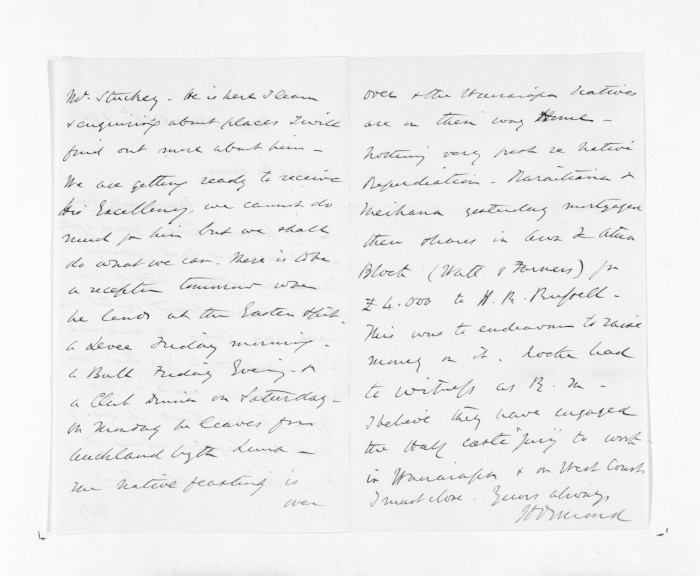 Mr. Stuckey - He is here I learn
& enquiring about places I will
find out more about him -
We are getting ready to receive
His Excellency, we cannot do
much for him but we shall
do what we can. There is to be
a reception tomorrow when
he lands at the Eastern Spit.
a Levee Friday morning.
a Ball Friday Evening. &
a Club dinner on Saturday -
on Monday he leaves for
Auckland by the Luna -
The native feasting is
over
over & the Wairarapa Natives
are on their way Home -
Nothing very fresh re Native
Repudiation - Karaitiana &
Meihana yesterday mortgaged
their shares in
Block (Watt & Farmers) for
£4.000 to H. R. Russell -
This was to endeavour to raise
money on it. Locke had
to witness as R. M -
I believe they have engaged
the Half caste to work
in Wairarapa & on West Coast
I must close. Yours always
JD Ormond